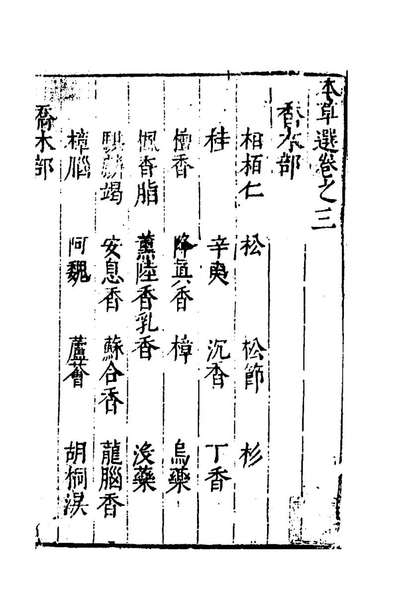 本草選卷之三
香木部
柏栢仁 松 松節 杉
桂 辛夷 沉香 丁香
檀香 降真香 樟 烏藥
楓香脂 薰陸香乳香 沒藥
騏驎竭 安息香 蘇合香 龍腦香
樟腦 阿魏 蘆薈 胡桐淚
喬木部